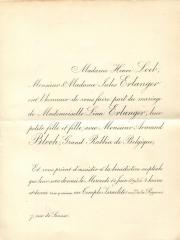 Madame Henri Loeb,
Monsieur & Madame Jules Erlanger
ont l'honneur de vous faire part du mariage
de Mademoiselle Erlanger, leur
petite fille et fille, avec Monsieur Armand
Bloch, Grand Rabbin de Belgique,
Et vous prient d'assister à la bénédiction nuptiale
qui leur sera donnée le Mercredi
au Temple Israélite
7, rue de